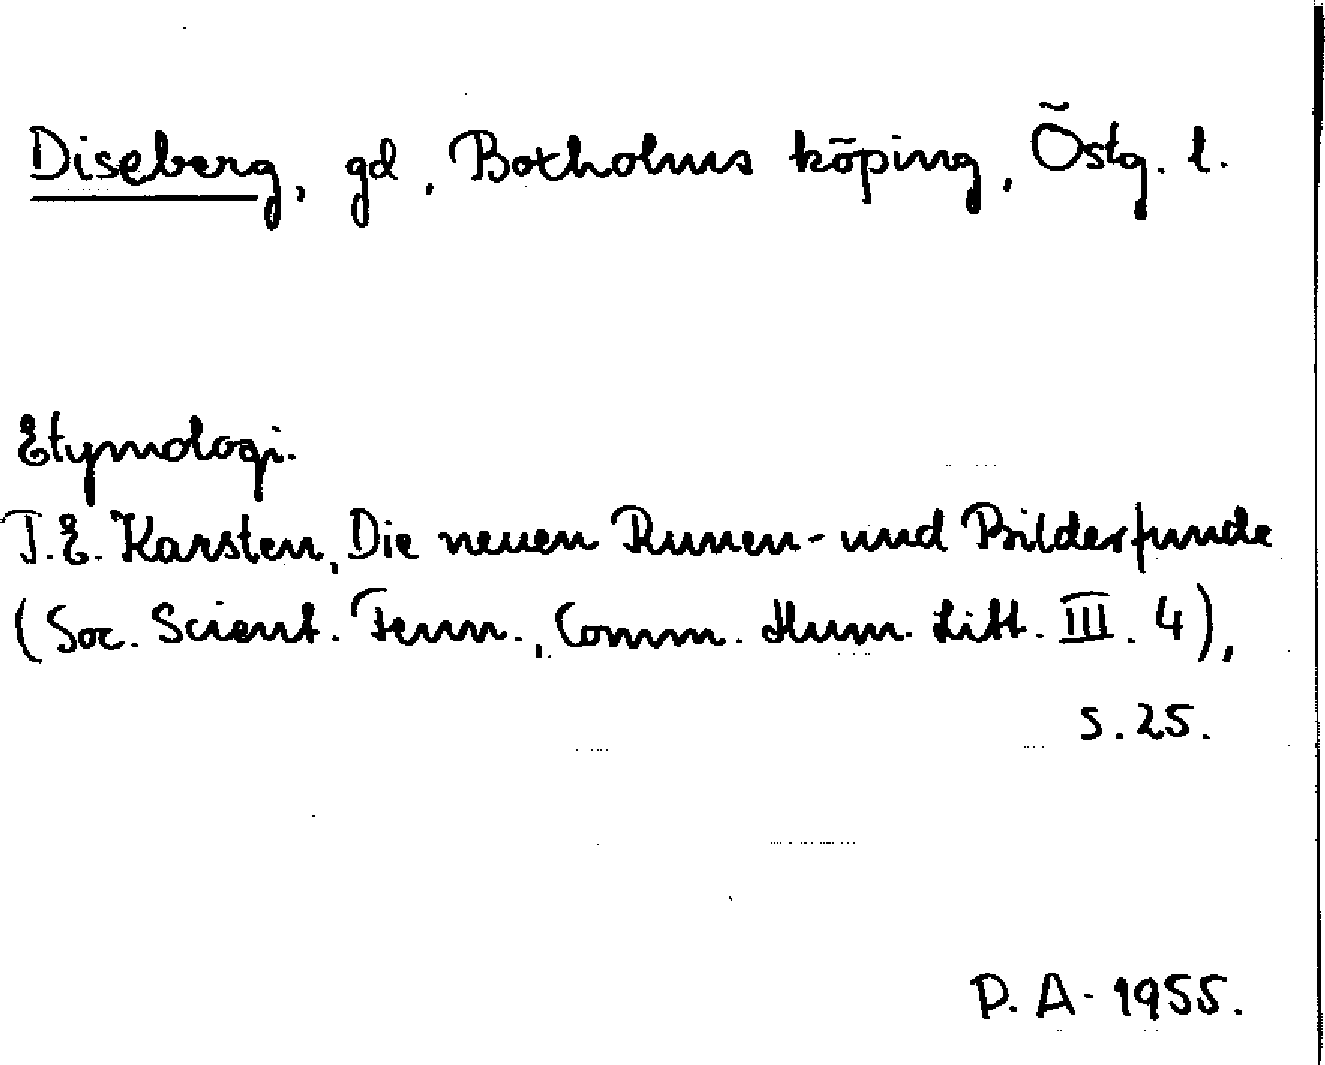 Diseberg, gd, Boxholms köping, Östg. l.
Etymologi.
T.E. Karsten, Die neuen Runen- und Bilderfunde
(Soc. Scient. Fenn., Comm. Hum. Litt. III. 4),
s. 25.
P. A. 1955.